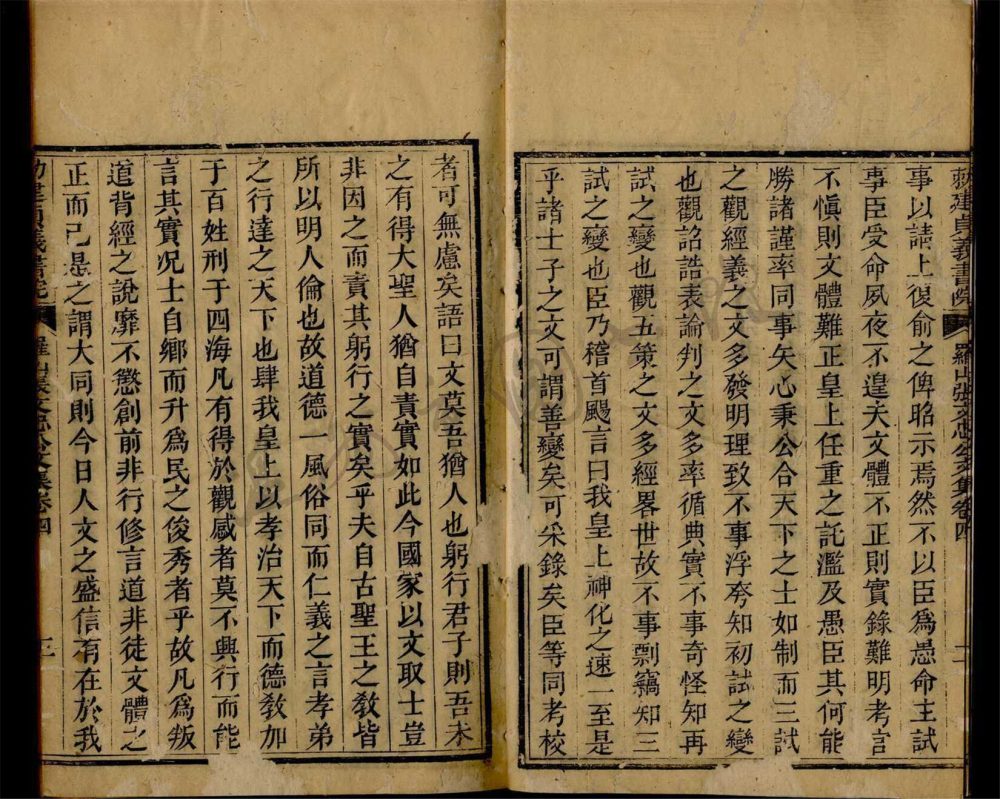 敕建貞義書院
羅山張文忠公文集卷四
二
事以請上復俞之俾昭示焉然不以臣爲愚命主試
事臣受命夙夜不遑夫文體不正則實錄難明考言
不愼則文體難正皇上任重之託濫及愚臣其何能
勝諸謹率同事矢心秉公合天下之士如制而三試
之觀經義之文多發明理致不事浮夸知初試之變
也觀詔誥表論判之文多率循典實不事奇怪知再
試之變也觀五策之文多經畧世故不事剽竊知三
試之變也臣乃稽首颺言曰我皇上神化之速一至是
乎諸士子之文可謂善變矣可采錄矣臣等同考校
者可無慮矣語曰文莫吾猶人也躬行君子則吾未
之有得大聖人猶自責實如此今國家以文取士豈
非因之而責其躬行之實矣乎夫自古聖王之敎皆
所以明人倫也故道德一風俗同而仁義之言孝弟
之行達之天下也肆我皇上以孝治天下而德敎加
于百姓刑于四海凡有得於觀感者莫不興行而能
言其實況士自鄉而升爲民之俊秀者乎故凡爲叛
道背經之說靡不懲創前非行修言道非徒文體之
正而已是之謂大同則今日人文之盛信有在於我
敕建貞義書院
羅山張文忠公文集卷四
三